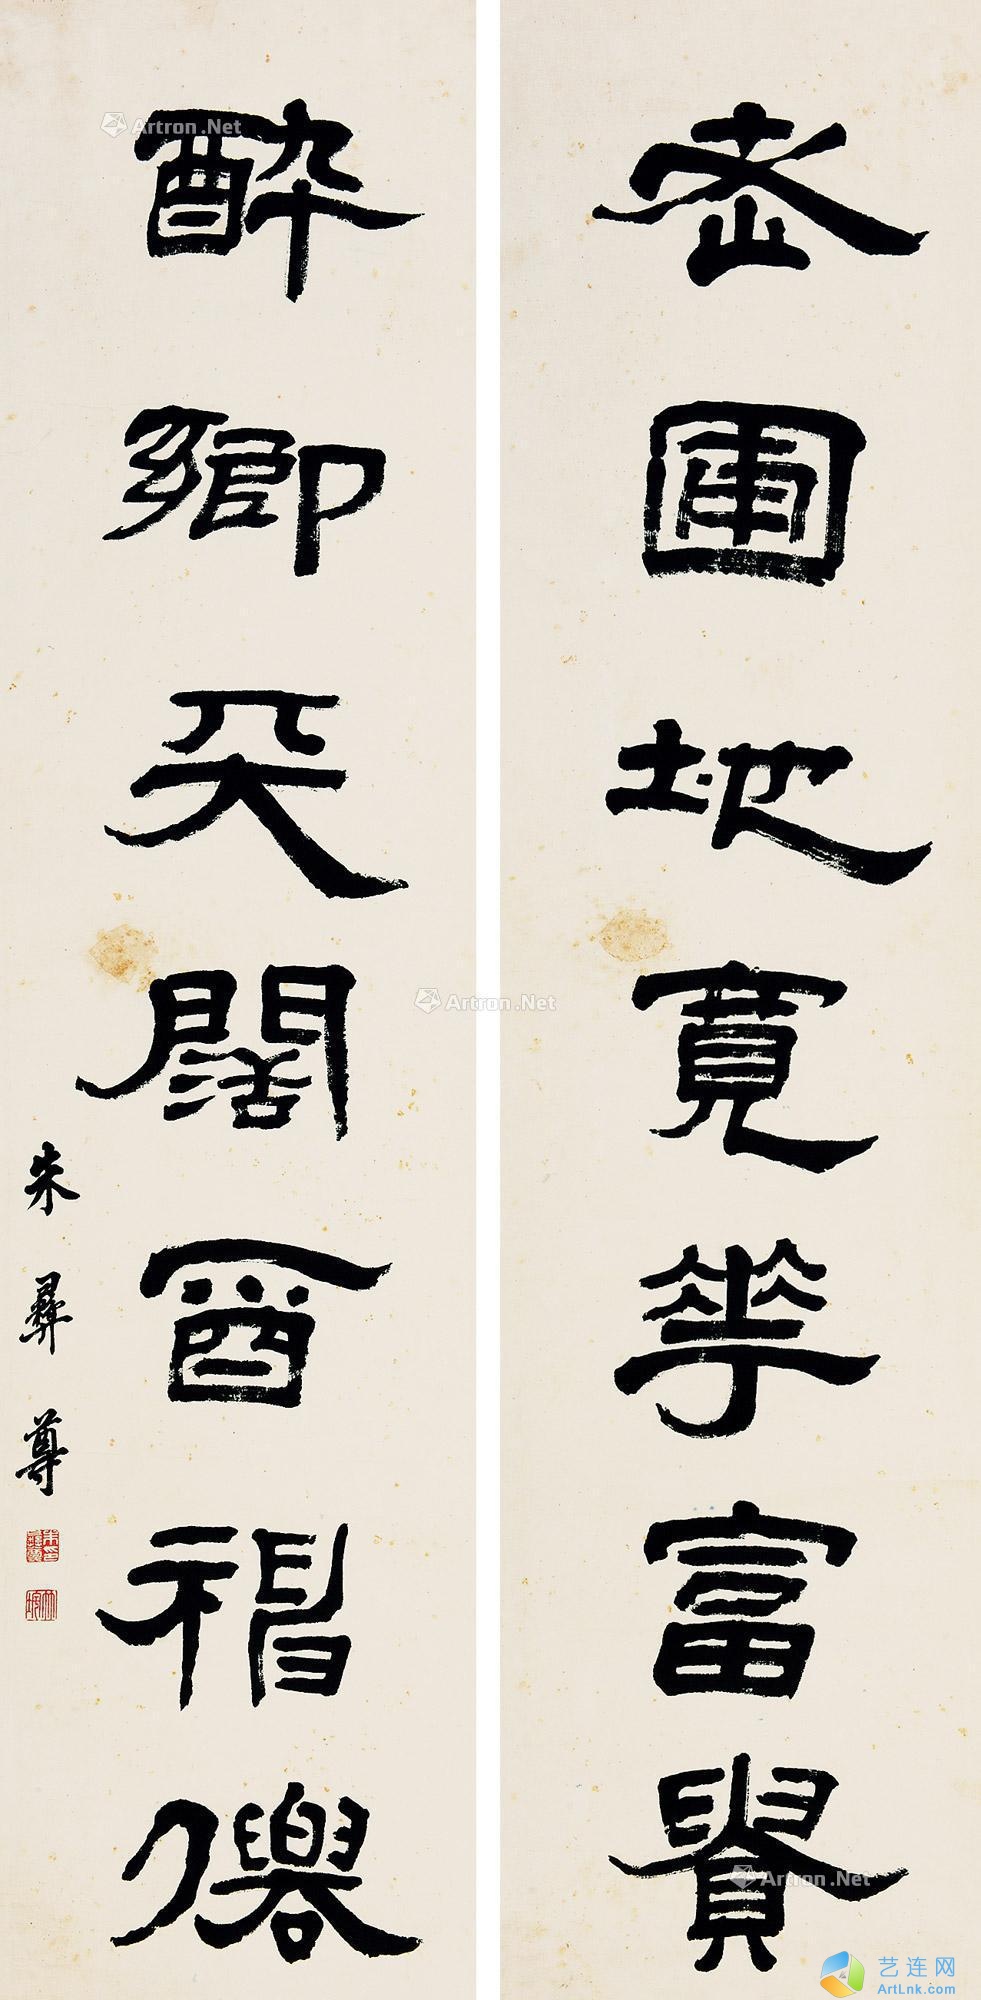 老圃地寬華富貴
醉鄉天闊酋神僊
朱彝尊
朱彝尊印
竹垞
Artron.Net
Artron.Net
Artron.Net
艺连网
ArtLnk.com